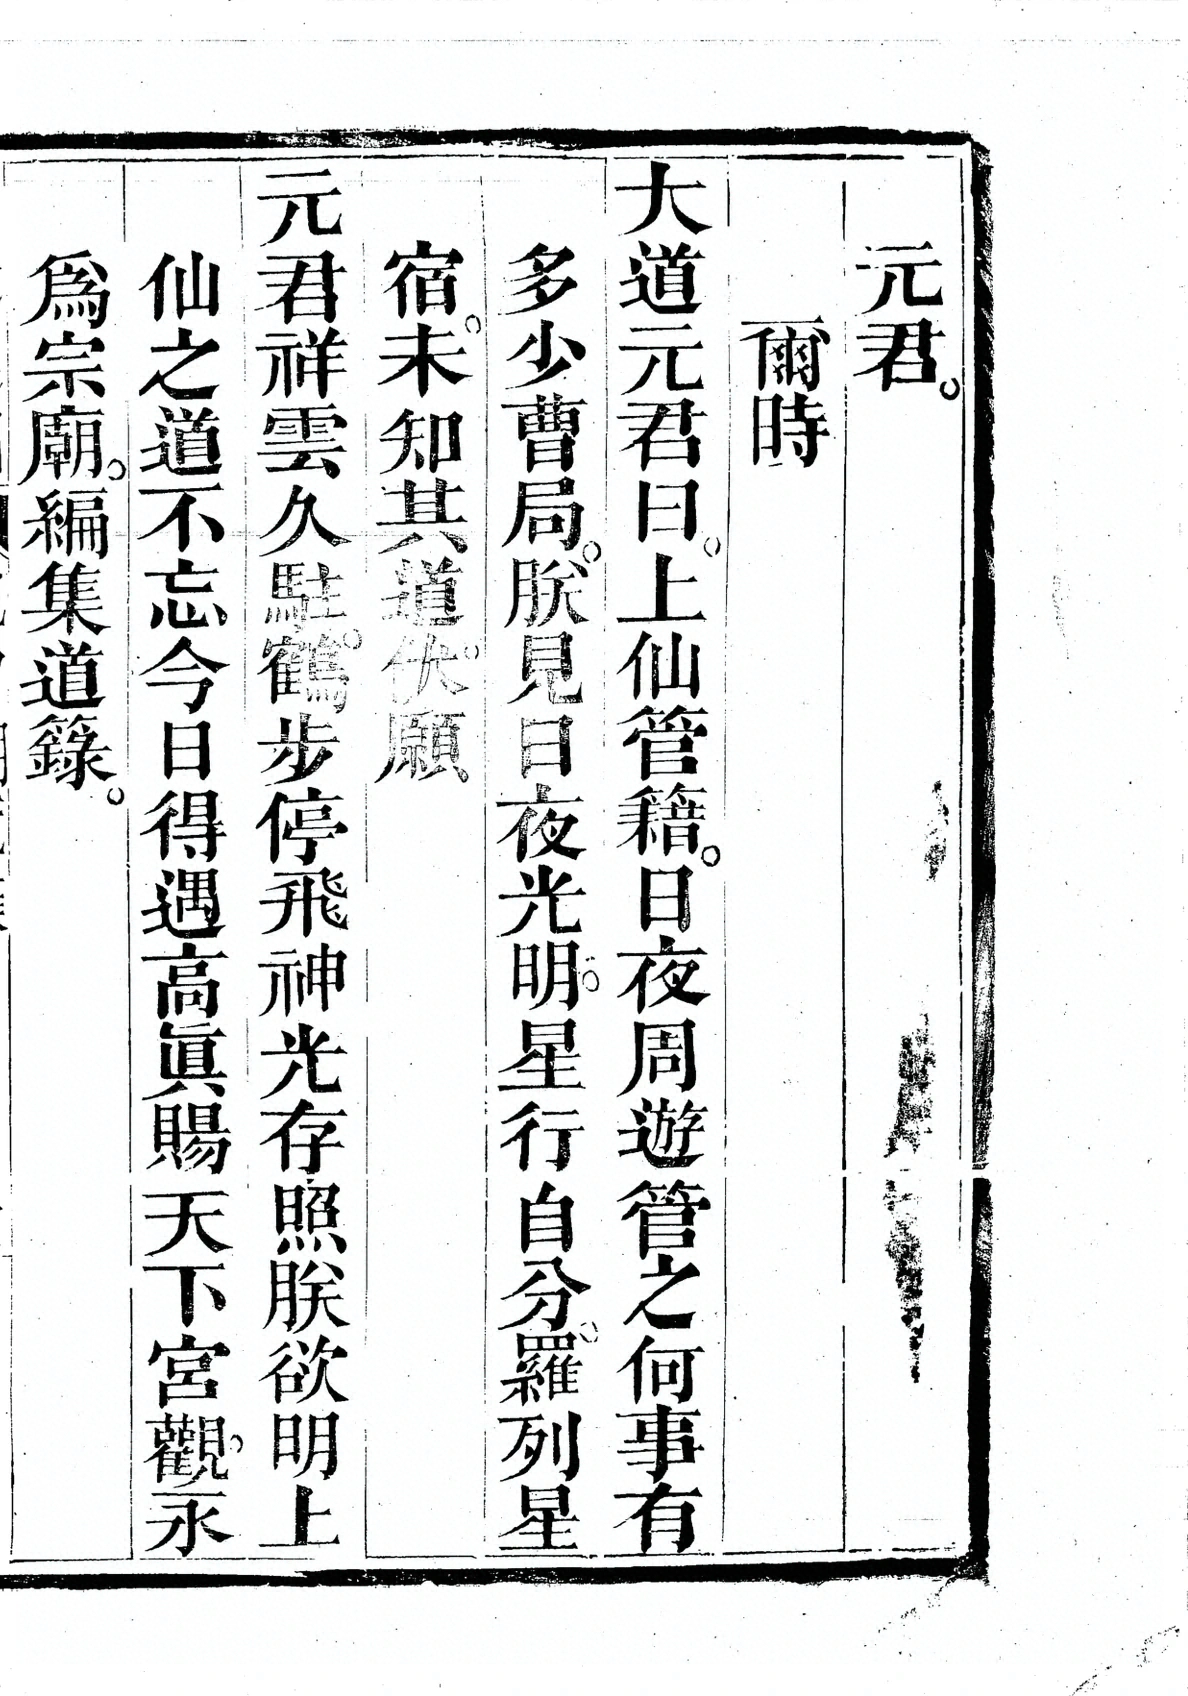 元君。
爾時
大道元君曰。上仙管籍。日夜周遊管之何事有
多少曹局。朕見日夜光明。星行自分。羅列星
宿。未知其道。伏願
元君祥雲久駐。鶴步停飛神光存照朕欲明上
仙之道不忘。今日得遇高眞賜天下宮觀。永
爲宗廟。編集道籙。